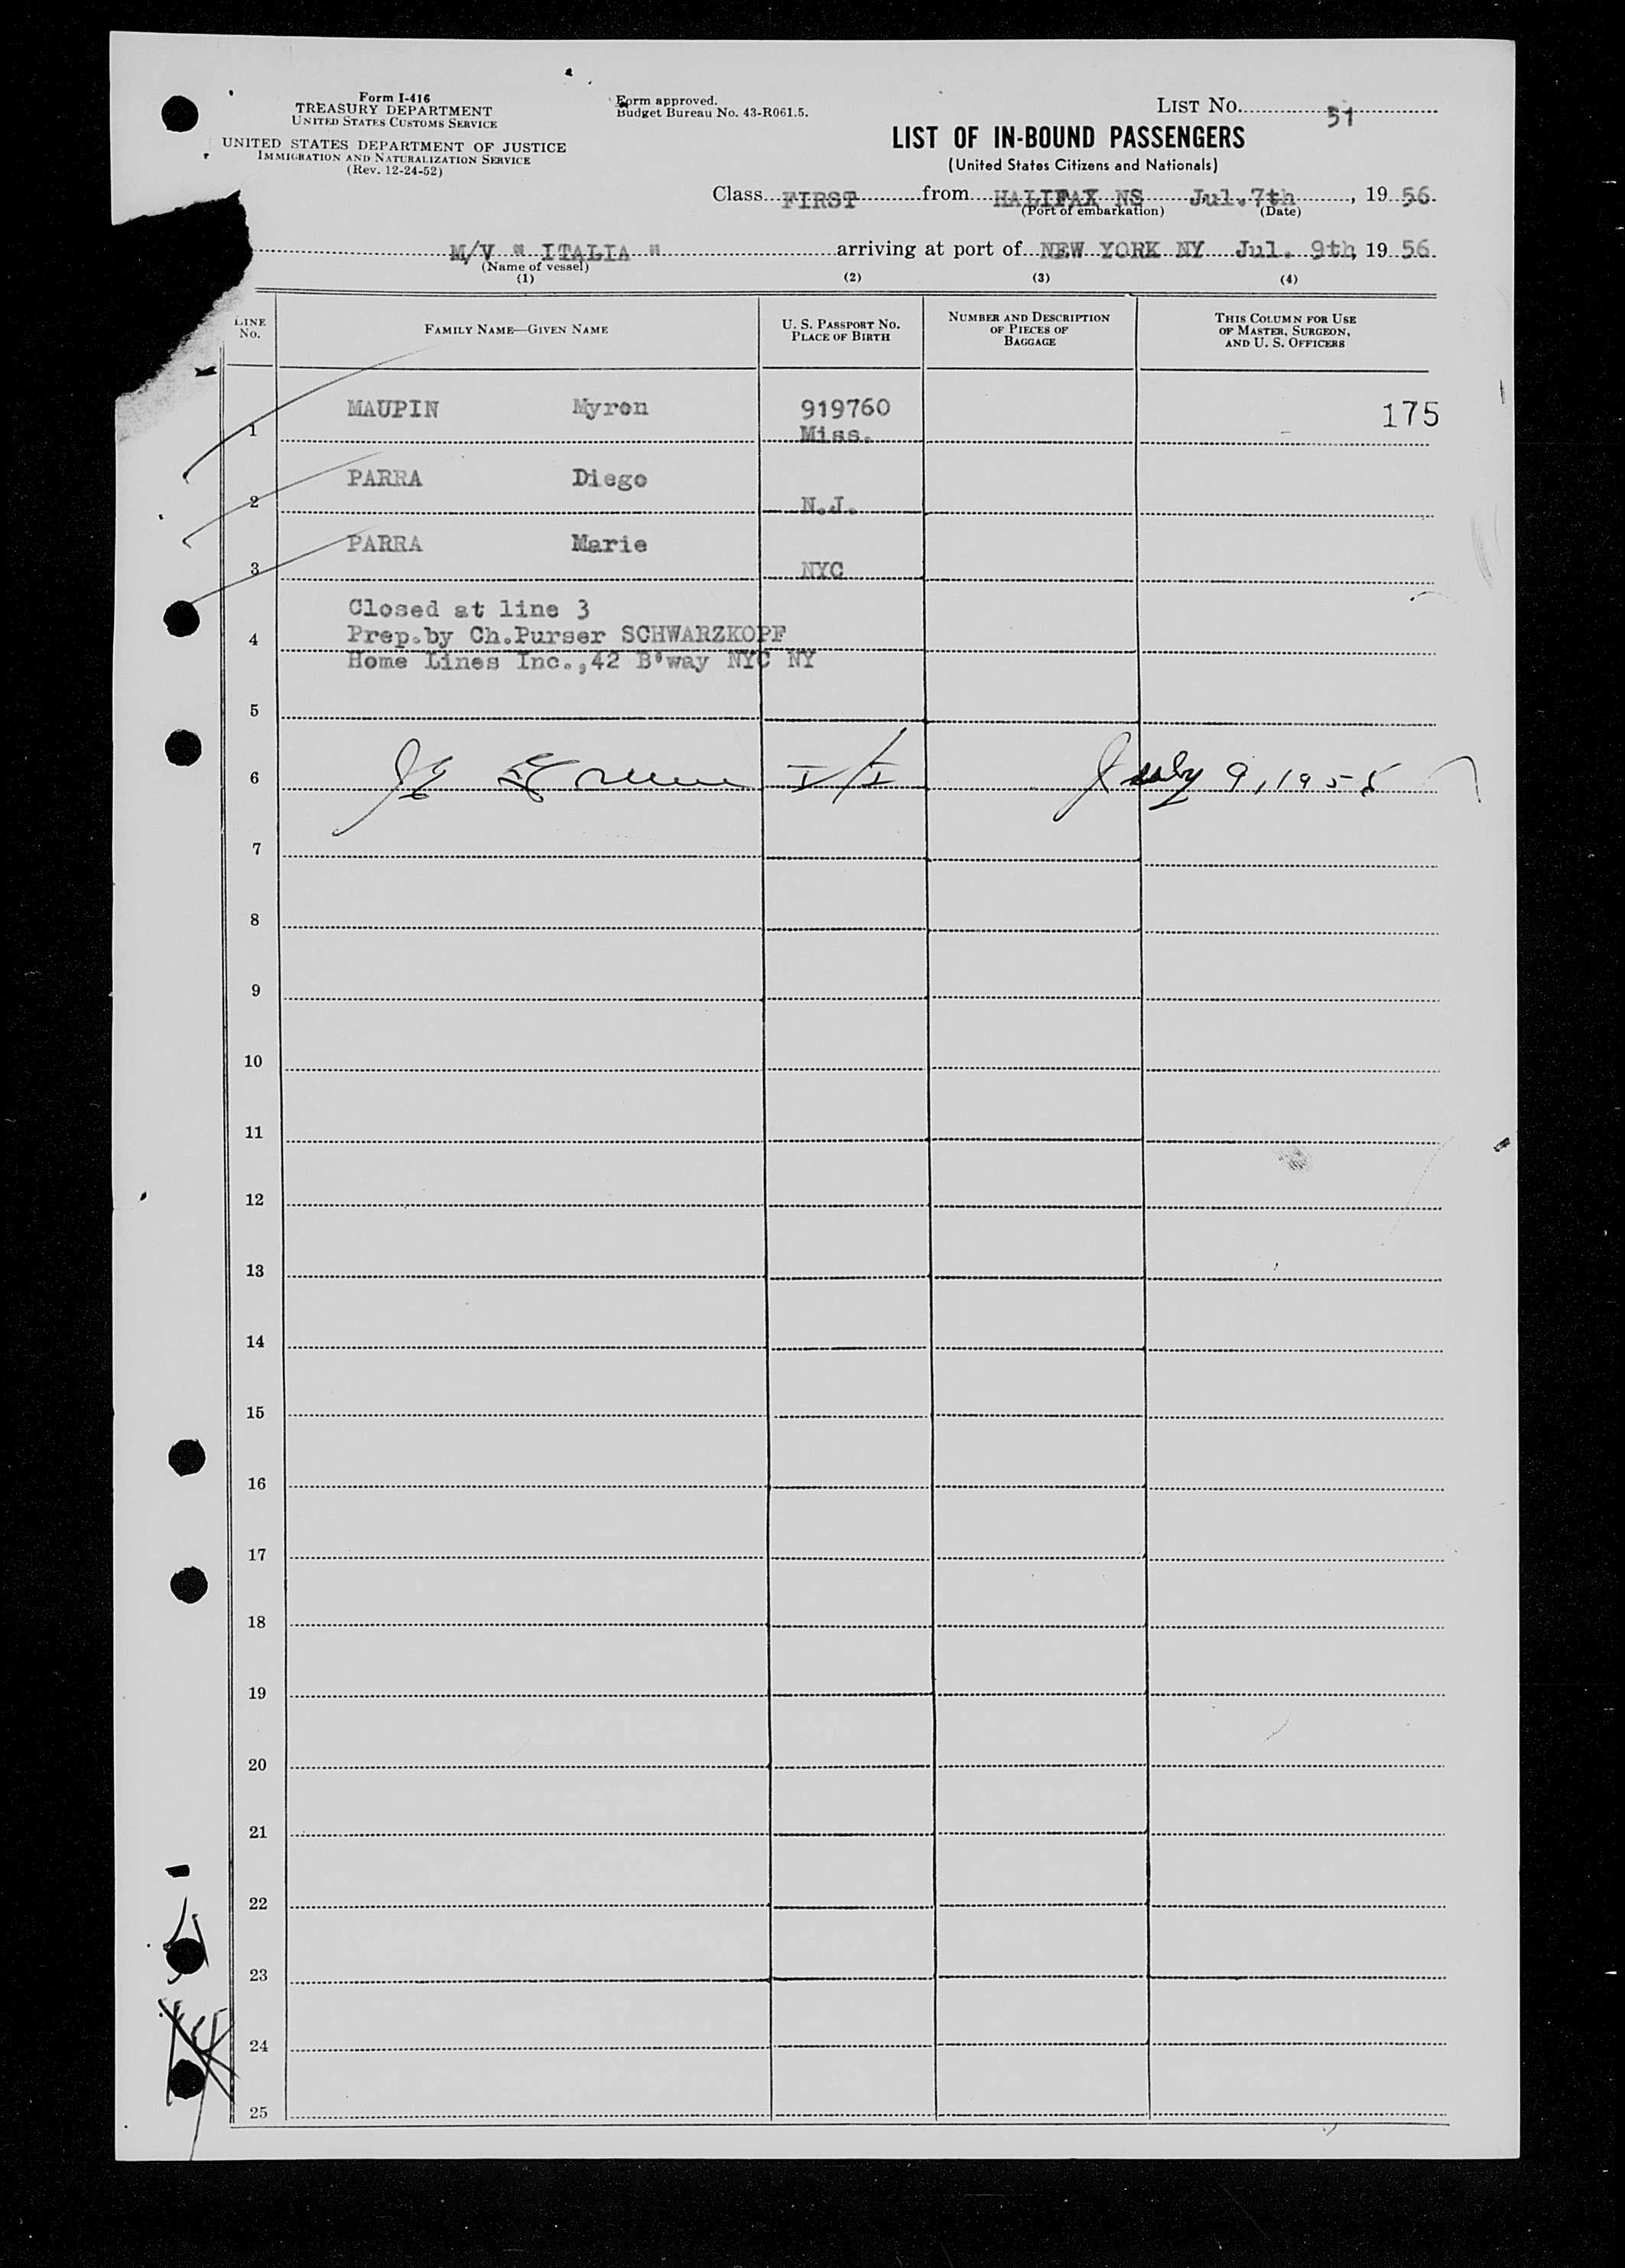 Form I-416
TREASURY DEPARTMENT
UNITED STATES CUSTOMS SERVICE
UNITED STATES DEPARTMENT OF JUSTICE
IMMIGRATION AND NATURALIZATION SERVICE
(Rev. 12-24-52)
Form approved.
Budget Bureau No. 43-R061.5.
LIST No. 51
LIST OF IN-BOUND PASSENGERS
(United States Citizens and Nationals)
Class FIRST from HALIFAX NS Jul.7th, 1956
(Port of embarkation) (Date)
M/V " ITALIA " arriving at port of NEW YORK NY Jul. 9th, 1956
(Name of vessel)
(1) (2) (3) (4)
LINE No. FAMILY NAME—GIVEN NAME U. S. PASSPORT NO. PLACE OF BIRTH NUMBER AND DESCRIPTION OF PIECES OF BAGGAGE THIS COLUMN FOR USE OF MASTER, SURGEON, AND U. S. OFFICERS
MAUPIN Myron 919760 175
1 Miss.
PARRA Diego
2 N.J.
PARRA Marie
3 NYC
Closed at line 3
4 Prep.by Ch.Purser SCHWARZKOPF
Home Lines Inc.,42 B'way NYC NY
5
6 I/I July 9, 195
7
8
9
10
11
12
13
14
15
16
17
18
19
20
21
22
23
24
25